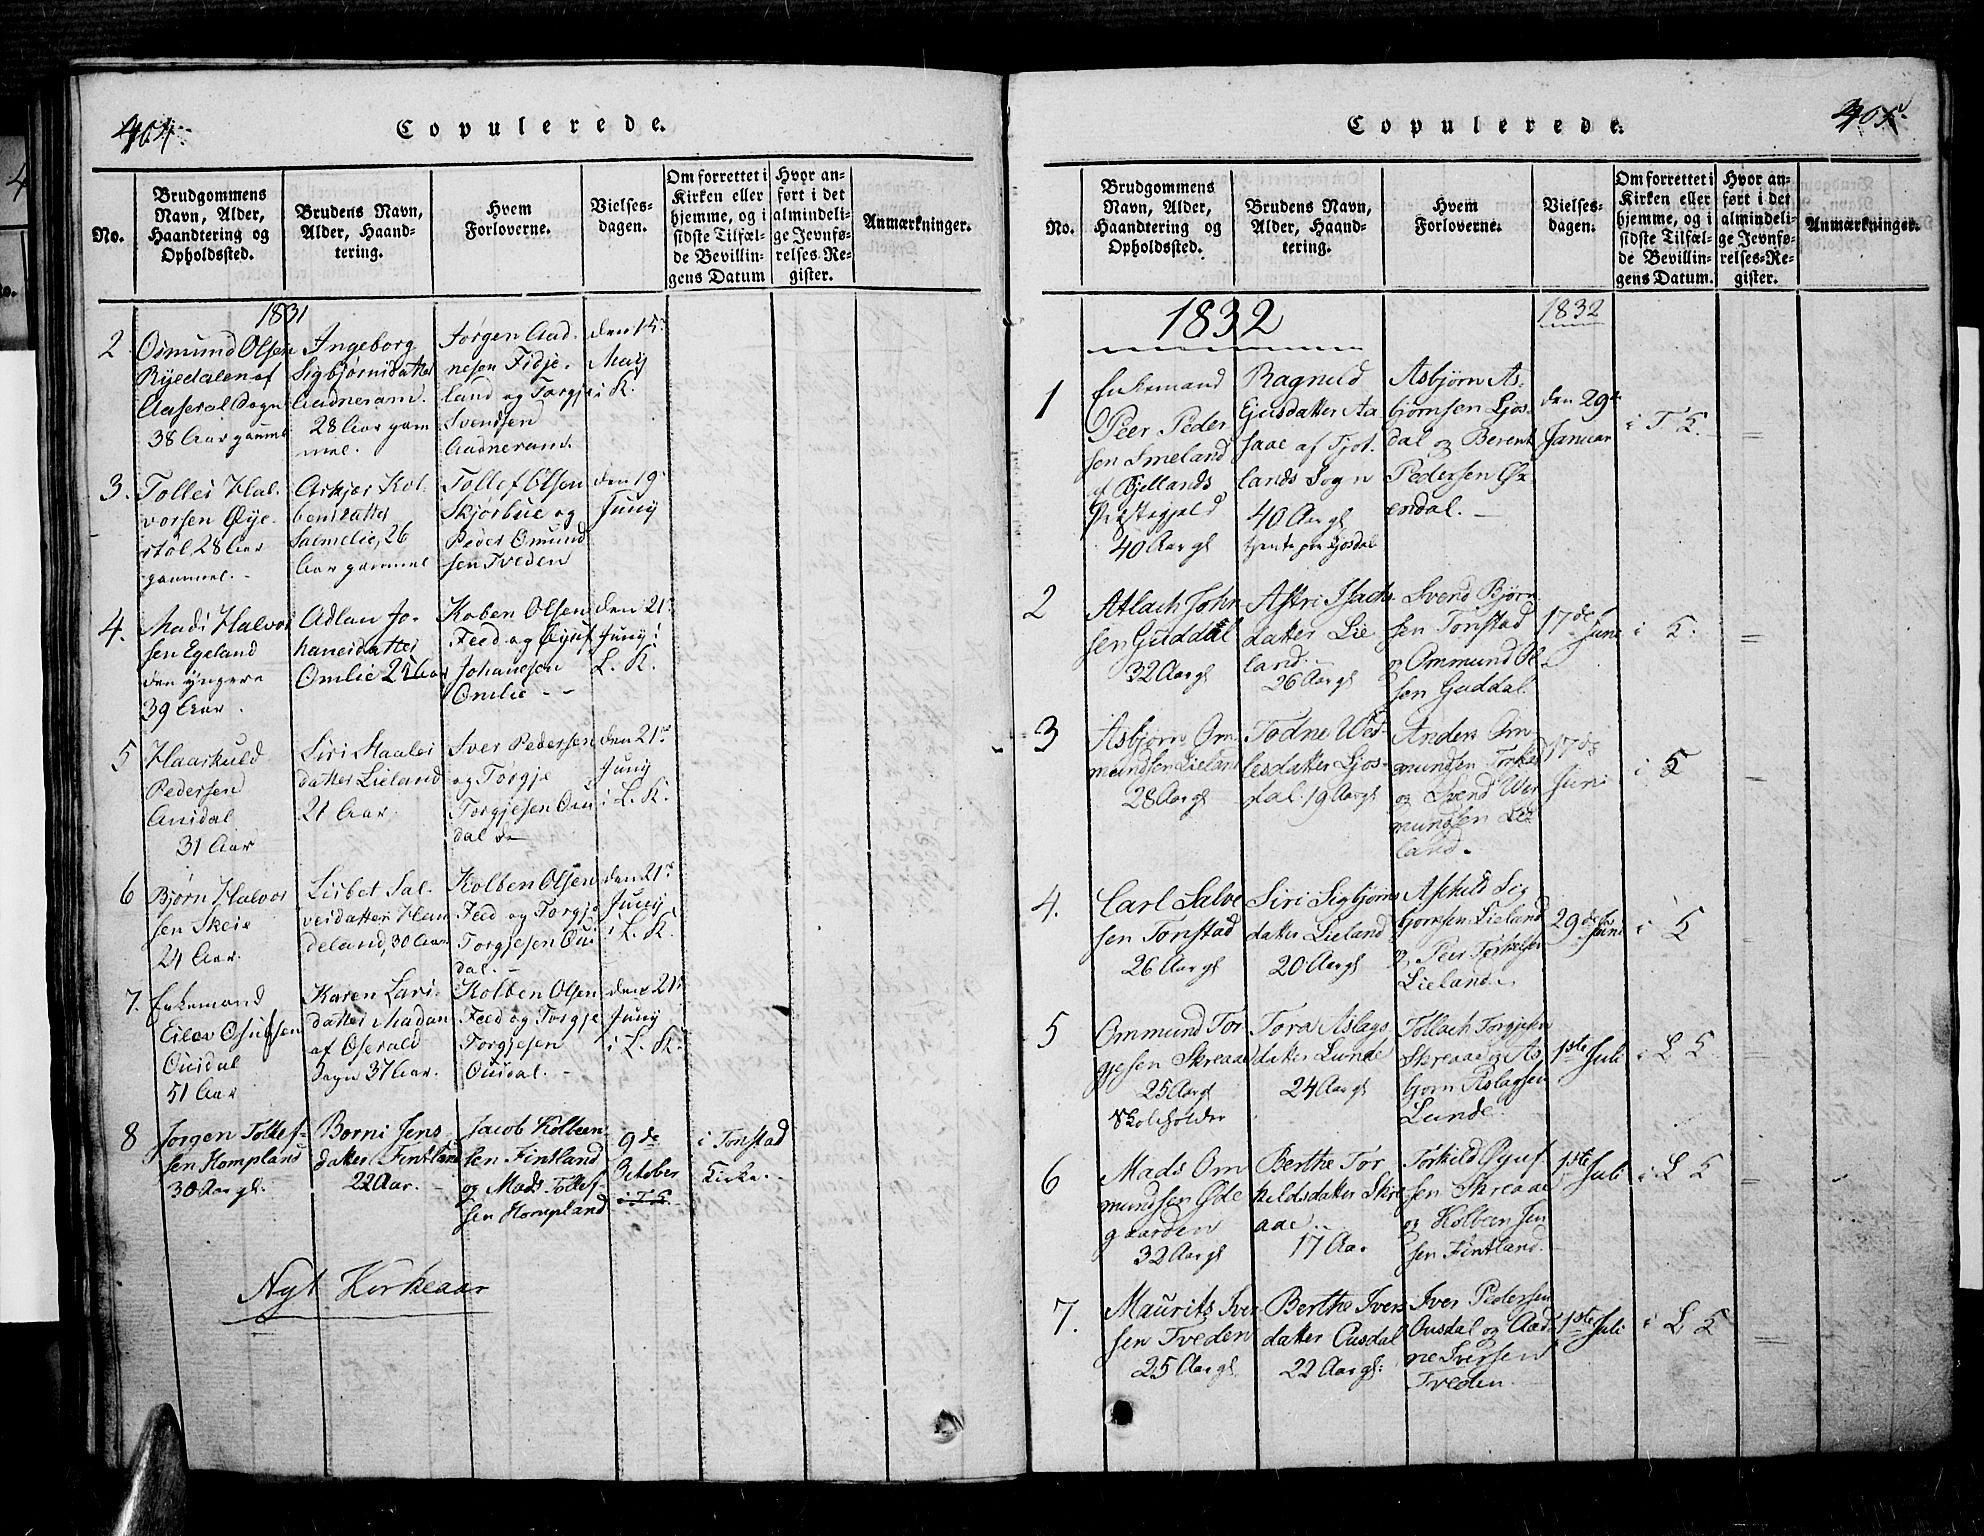 404.
Copulerede.
No.
Brudgommens
Navn, Alder,
Haandtering og
Opholdssted.
Brudens Navn,
Alder, Haand-
tering.
Hvem
Forloverne.
Vielses-
dagen.
Om forrettet i
Kirken eller
hjemme, og i
sidste Tilfæl-
de Bevillin-
gens Datum
Hvor an-
ført i det
almindeli-
ge Jevnfø-
relses-Re-
gister.
Anmærkninger.
1831
2
Osmund Olsen
Ryedalen af
Aaseral Sogn
38 Aar gammel
Ingeborg
Sigbjørnsdatter
Aadneram.
28 Aar gam
mel.
Jørgen Aad-
nesen Fidje-
land og Torgje
Svendsen
Aadneram.
den 15de
Maij
i K.
3.
Tollei Hal-
vorsen Øye-
støl 28 Aar
gammel.
Askjer Kol-
bensdatter
Salmelie, 26
Aar gammel
Tollef Olsen
Skjorbue og
Peder Omund
sen Tveden
den 19
Junij
4.
Mads Halvor
sen Egeland
den yngere
39 Aar.
Adlau Jo-
hanesdatter
Omlie 25 Aar
Koben Olsen
Feed og Øyuf
Johanesen
Omlie - -
den 21de
Junij i
L. K.
5
Haarkuld
Pedersen
Ousdal
31 Aar
Siri Staales
datter Lieland
21 Aar.
Iver Pedersen
og Torgje
Torgjesen Ous
dal
den 21de
Junij
i L. K.
6
Bjørn Halvor
sen Skeie
24 Aar.
Lisbet Sal-
vesdatter Hau
deland, 30 Aar
Kolben Olsen
Feed og Torgje
Torgjesen Ous
dal.
den 21de
Junij
i L. K.
7.
Enkemand
Eilev Osufsen
Ousdal
51 Aar
Karen Lars-
datter Madan
af Oserald
Sogn 37 Aar.
Kolben Olsen
Feed og Torgje
Torgjesen
Ousdal. -
den 21de
Junij
i L. K.
8
Jørgen Tollef-
sen Hompland
30 Aar gl.
Borni Jens
datter Fintland
22 Aar. -
Jacob Kolbeen-
sen Fintland
og Mads Tollef-
sen Hompland
9de
October
i T K
i Tonstad
Kirke. -
Nyt Kirkeaar
405.
Copulerede.
No.
Brudgommens
Navn, Alder,
Haandtering og
Opholdssted.
Brudens Navn,
Alder, Haand-
tering.
Hvem
Forloverne.
Vielses-
dagen.
Om forrettet i
Kirken eller
hjemme, og i
sidste Tilfæl-
de Bevillin-
gens Datum.
Hvor an-
ført i det
almindeli-
ge Jevnfø-
relses-Re-
gister.
Anmærkninger.
1832
1832
1
Enkemand
Peer Peder
sen Imeland
af Bjellands
Præstegjeld
40 Aar gl
Ragnild
Ejusdatter Aa
saae af Fjot-
lands Sogn
40 Aar gl
tjente paa Josdal
Asbjørn As-
bjørnsen Ljos-
dal og Berent
Pedersen Øx
endal. -
den 29de
Januar
i T K.
=
2
Atlach John
sen Guddal
32 Aar gl
Astri Isachs
datter Lie
land.
26 Aar gl
Svend Bjørn
sen Tonstad
og Ommund Ol
sen Guddal.
17de
Juni
i K.
=
3
Asbjørn Om
mundsen Lieland
28 Aar gl
Todne Wed-
lesdatter Ljos-
dal. 19 Aar gl
Anders Om
mundsen
og Svend
mundsen Lie
land.
17de
Juni
i K
=
4.
Carl Salve
sen Tonstad
26 Aar gl
Siri Sigbjørns
datter Lieland
20 Aar gl
Askild Sig
bjørnsen Lieland
og Peer Torkelsen
Lieland.
29de Juni
i K
5
Ommund Tor
gjesen Skreaae
25 Aar gl
Skoleholder
Tora Aslags
datter Lunde
24 Aar gl
Tollach Torgjesen
Skreaae og As
bjørn Aslagsen
Lunde.
1ste Juli
i L K.
6
Mads Om
mundsen Øde
gaarden
32 Aar gl
Berthe Tor
keldsdatter Skre
aae..
17 Aa.
Torkild Oyuf-
sen Skreaae
og Kolbeen Jen
sen Fintland.
1ste Juli
i L K
=
7.
Maurits Iver
sen Tveden
25 Aar gl
Berthe Ivers
datter Ousdal
22 Aar gl:
Iver Pedersen
Ousdal og Aad-
ne Iversen
Tveden.
1ste Juli
i L K
=